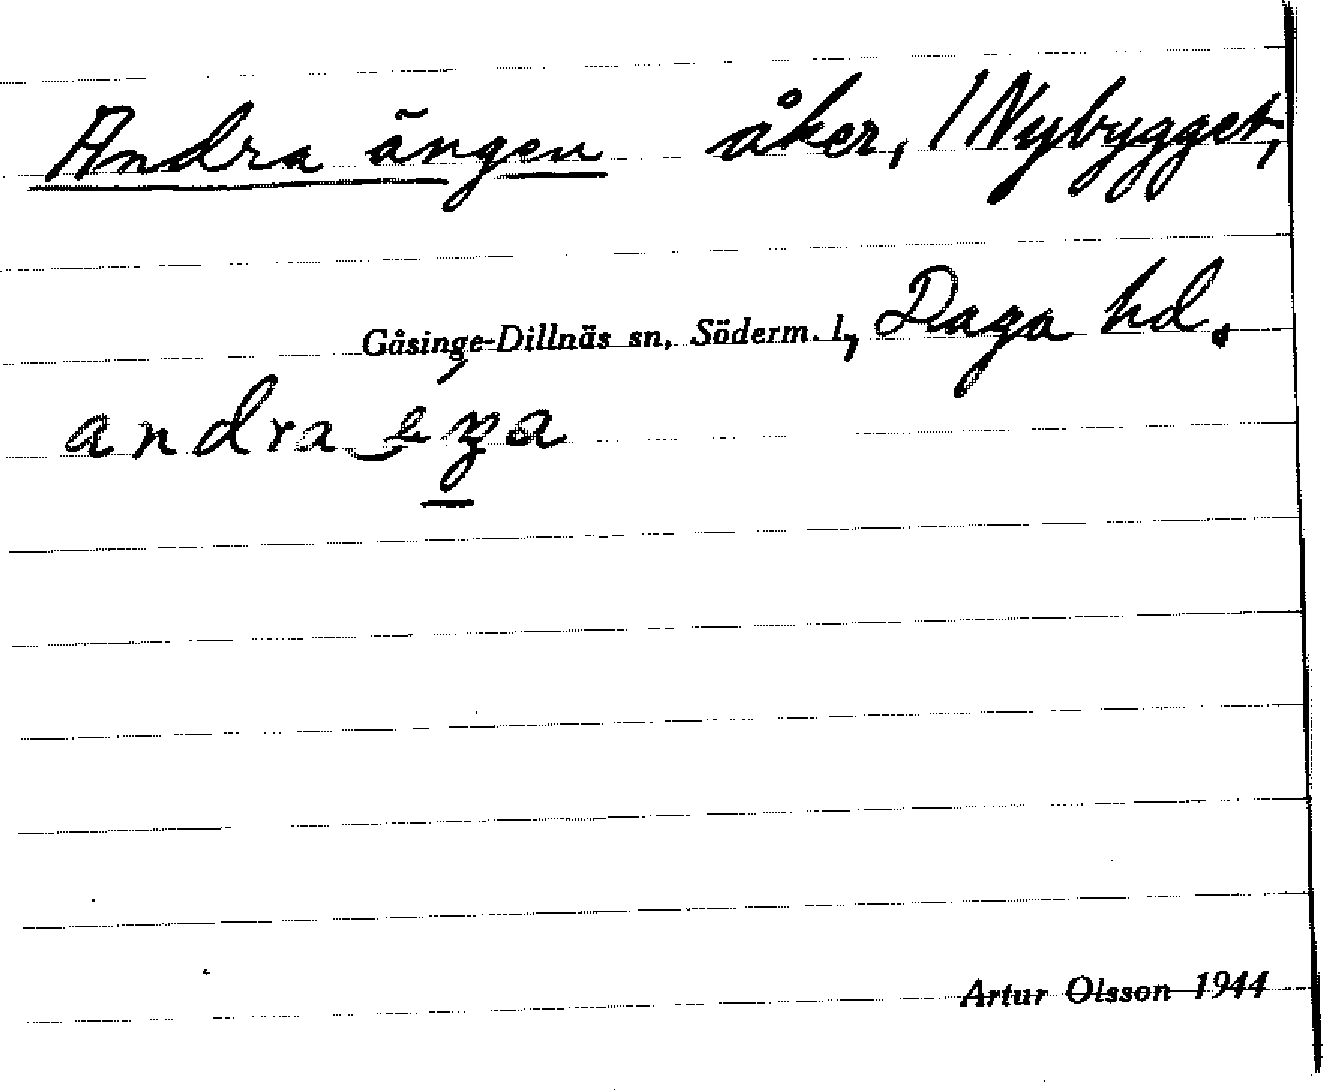 Andra ängen åker, 1 Nybygget,
Gåsinge-Dillnäs sn, Söderm. l, Daga hd.
andra
Artur Olsson 1944